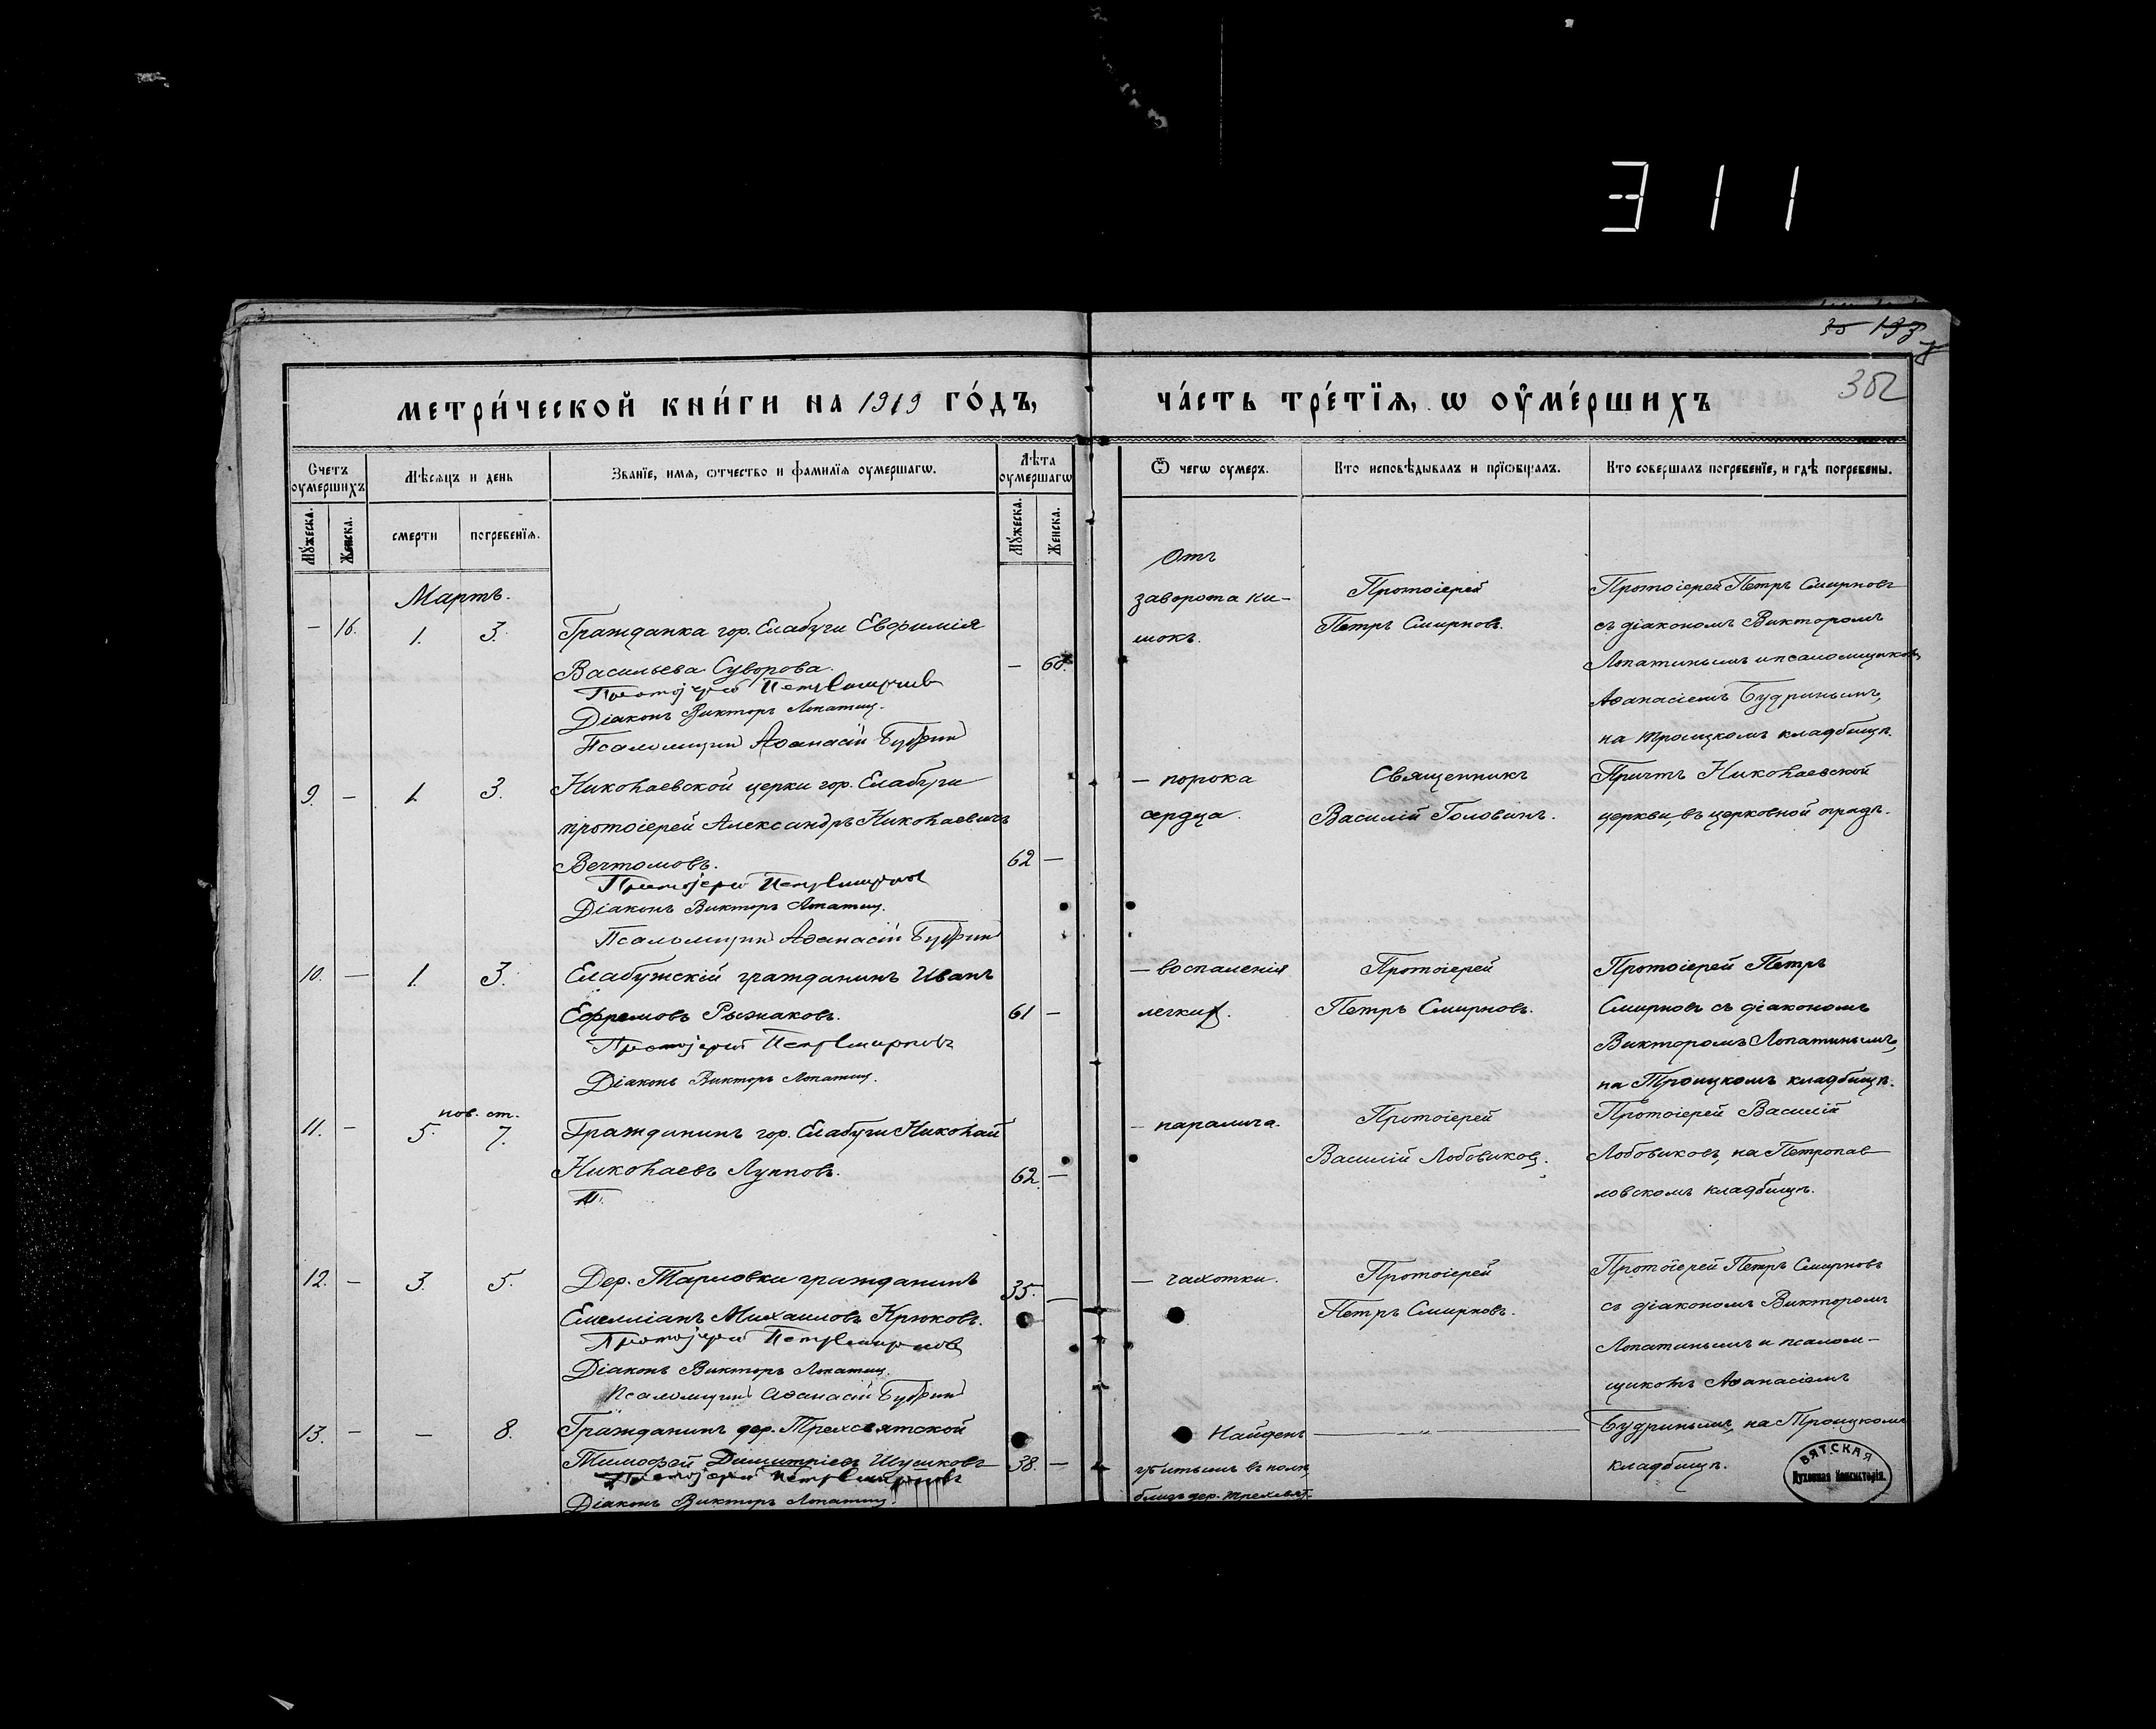 311
35 193
302
МЕТРИ́ЧЕСКОЙ КНИ́ГИ НА 1919 ГО́ДЪ, ЧА́СТЬ ТРЕ́ТІЯ, Ѡ ОУМЕ́РШИХЪ
Счетъ оумершихъ
Мѣсяцъ и день
Званїе, имя, ѿчество и фамилїя оумершагѡ.
Лѣта оумершагѡ
Ѿ чегѡ оумеръ.
Кто исповѣдывалъ и прїѡбщалъ.
Кто совершалъ погребенїе, и гдѣ погребены.
Мꙋжеска.
Женска.
смерти
погребенїя.
Мꙋжеска.
Женска.
Мартъ.
– 16. 1. 3.
Гражданка гор. Елабуги Евфимія
Васильева Суворова.
– 60
Протоіерей Петръ Смирновъ
Діаконъ Викторъ Лопатин.
Псаломщикъ Аѳанасій Будрин
Отъ
заворота ки-
шокъ.
Протоіерей
Петръ Смирновъ.
Протоіерей Петръ Смирновъ
съ діакономъ Викторомъ
Лопатинымъ и псаломщиком
Аѳанасіемъ Будринымъ,
на Троицкомъ кладбищѣ.
9. – 1. 3.
Николаевской церкви гор. Елабуги
протоіерей Александръ Николаевичъ
Вечтомовъ.
62 –
Протоіерей Петръ Смирнов
Діаконъ Викторъ Лопатин.
Псаломщикъ Аѳанасій Будрин
– порока
сердца.
Священникъ
Василій Головинъ.
Причтъ Николаевской
церкви, въ церковной оградѣ.
10. – 1. 3.
Елабужскій гражданинъ Иванъ
Ефремовъ Рызнаковъ.
61 –
Протоіерей Петръ Смирновъ
Діаконъ Викторъ Лопатин.
– воспаленія
легких.
Протоіерей
Петръ Смирновъ.
Протоіерей Петръ
Смирновъ съ діакономъ
Викторомъ Лопатинымъ,
на Троицкомъ кладбищѣ.
нов. ст.
11. – 5. 7.
Гражданинъ гор. Елабуги Николай
Николаевъ Луппов.
62. –
– паралича.
Протоіерей
Василій Лобовиков.
Протоіерей Василій
Лобовиковъ, на Петропав-
ловскомъ кладбищѣ.
12. – 3. 5.
Дер. Тарловки гражданинъ
Емелліанъ Михаиловъ Крюковъ.
35. –
Протоіерей Петръ Смирнов
Діаконъ Викторъ Лопатин.
Псаломщикъ Аѳанасій Будрин
– чахотки.
Протоіерей
Петръ Смирновъ.
Протоіерей Петръ Смирновъ
съ діакономъ Викторомъ
Лопатинымъ и псалом-
щикомъ Аѳанасіемъ
Будринымъ, на Троицкомъ
кладбищѣ.
13. – – 8.
Гражданинъ дер. Трехсвятской
Тимофей Димитріевъ Шушковъ
38. –
Протоіерей Петръ Смирновъ
Діаконъ Викторъ Лопатин.
Найденъ
убитымъ въ полѣ,
близъ дер. Трехсвят-
ВЯТСКАЯ
Духовная Консисторія.